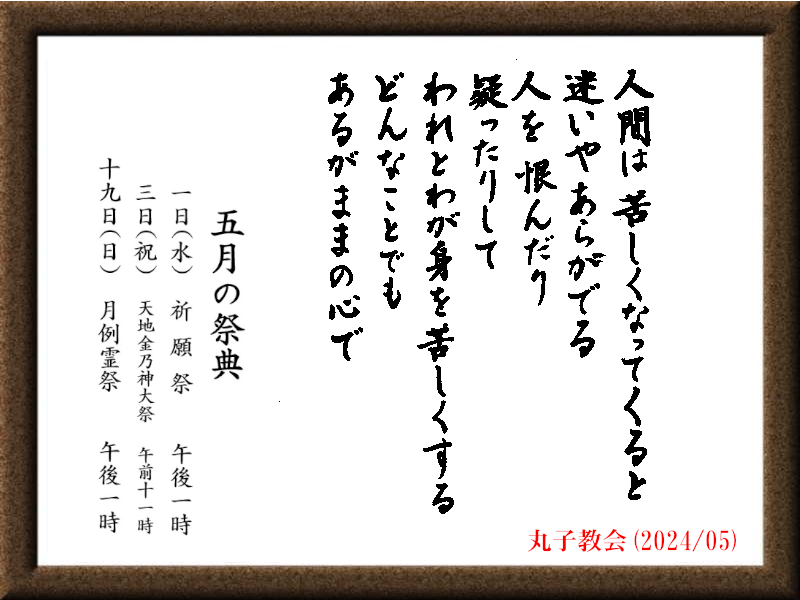 人間は苦しくなってくると
迷いやあらがでる
人を恨んだり
疑ったりして
われとわが身を苦しくする
どんなことでも
あるがままの心で
五月の祭典
一日(水) 祈願祭 午後一時
三日(祝) 天地金乃神大祭 午前十一時
十九日(日) 月例霊祭 午後一時
丸子教会(2024/05)